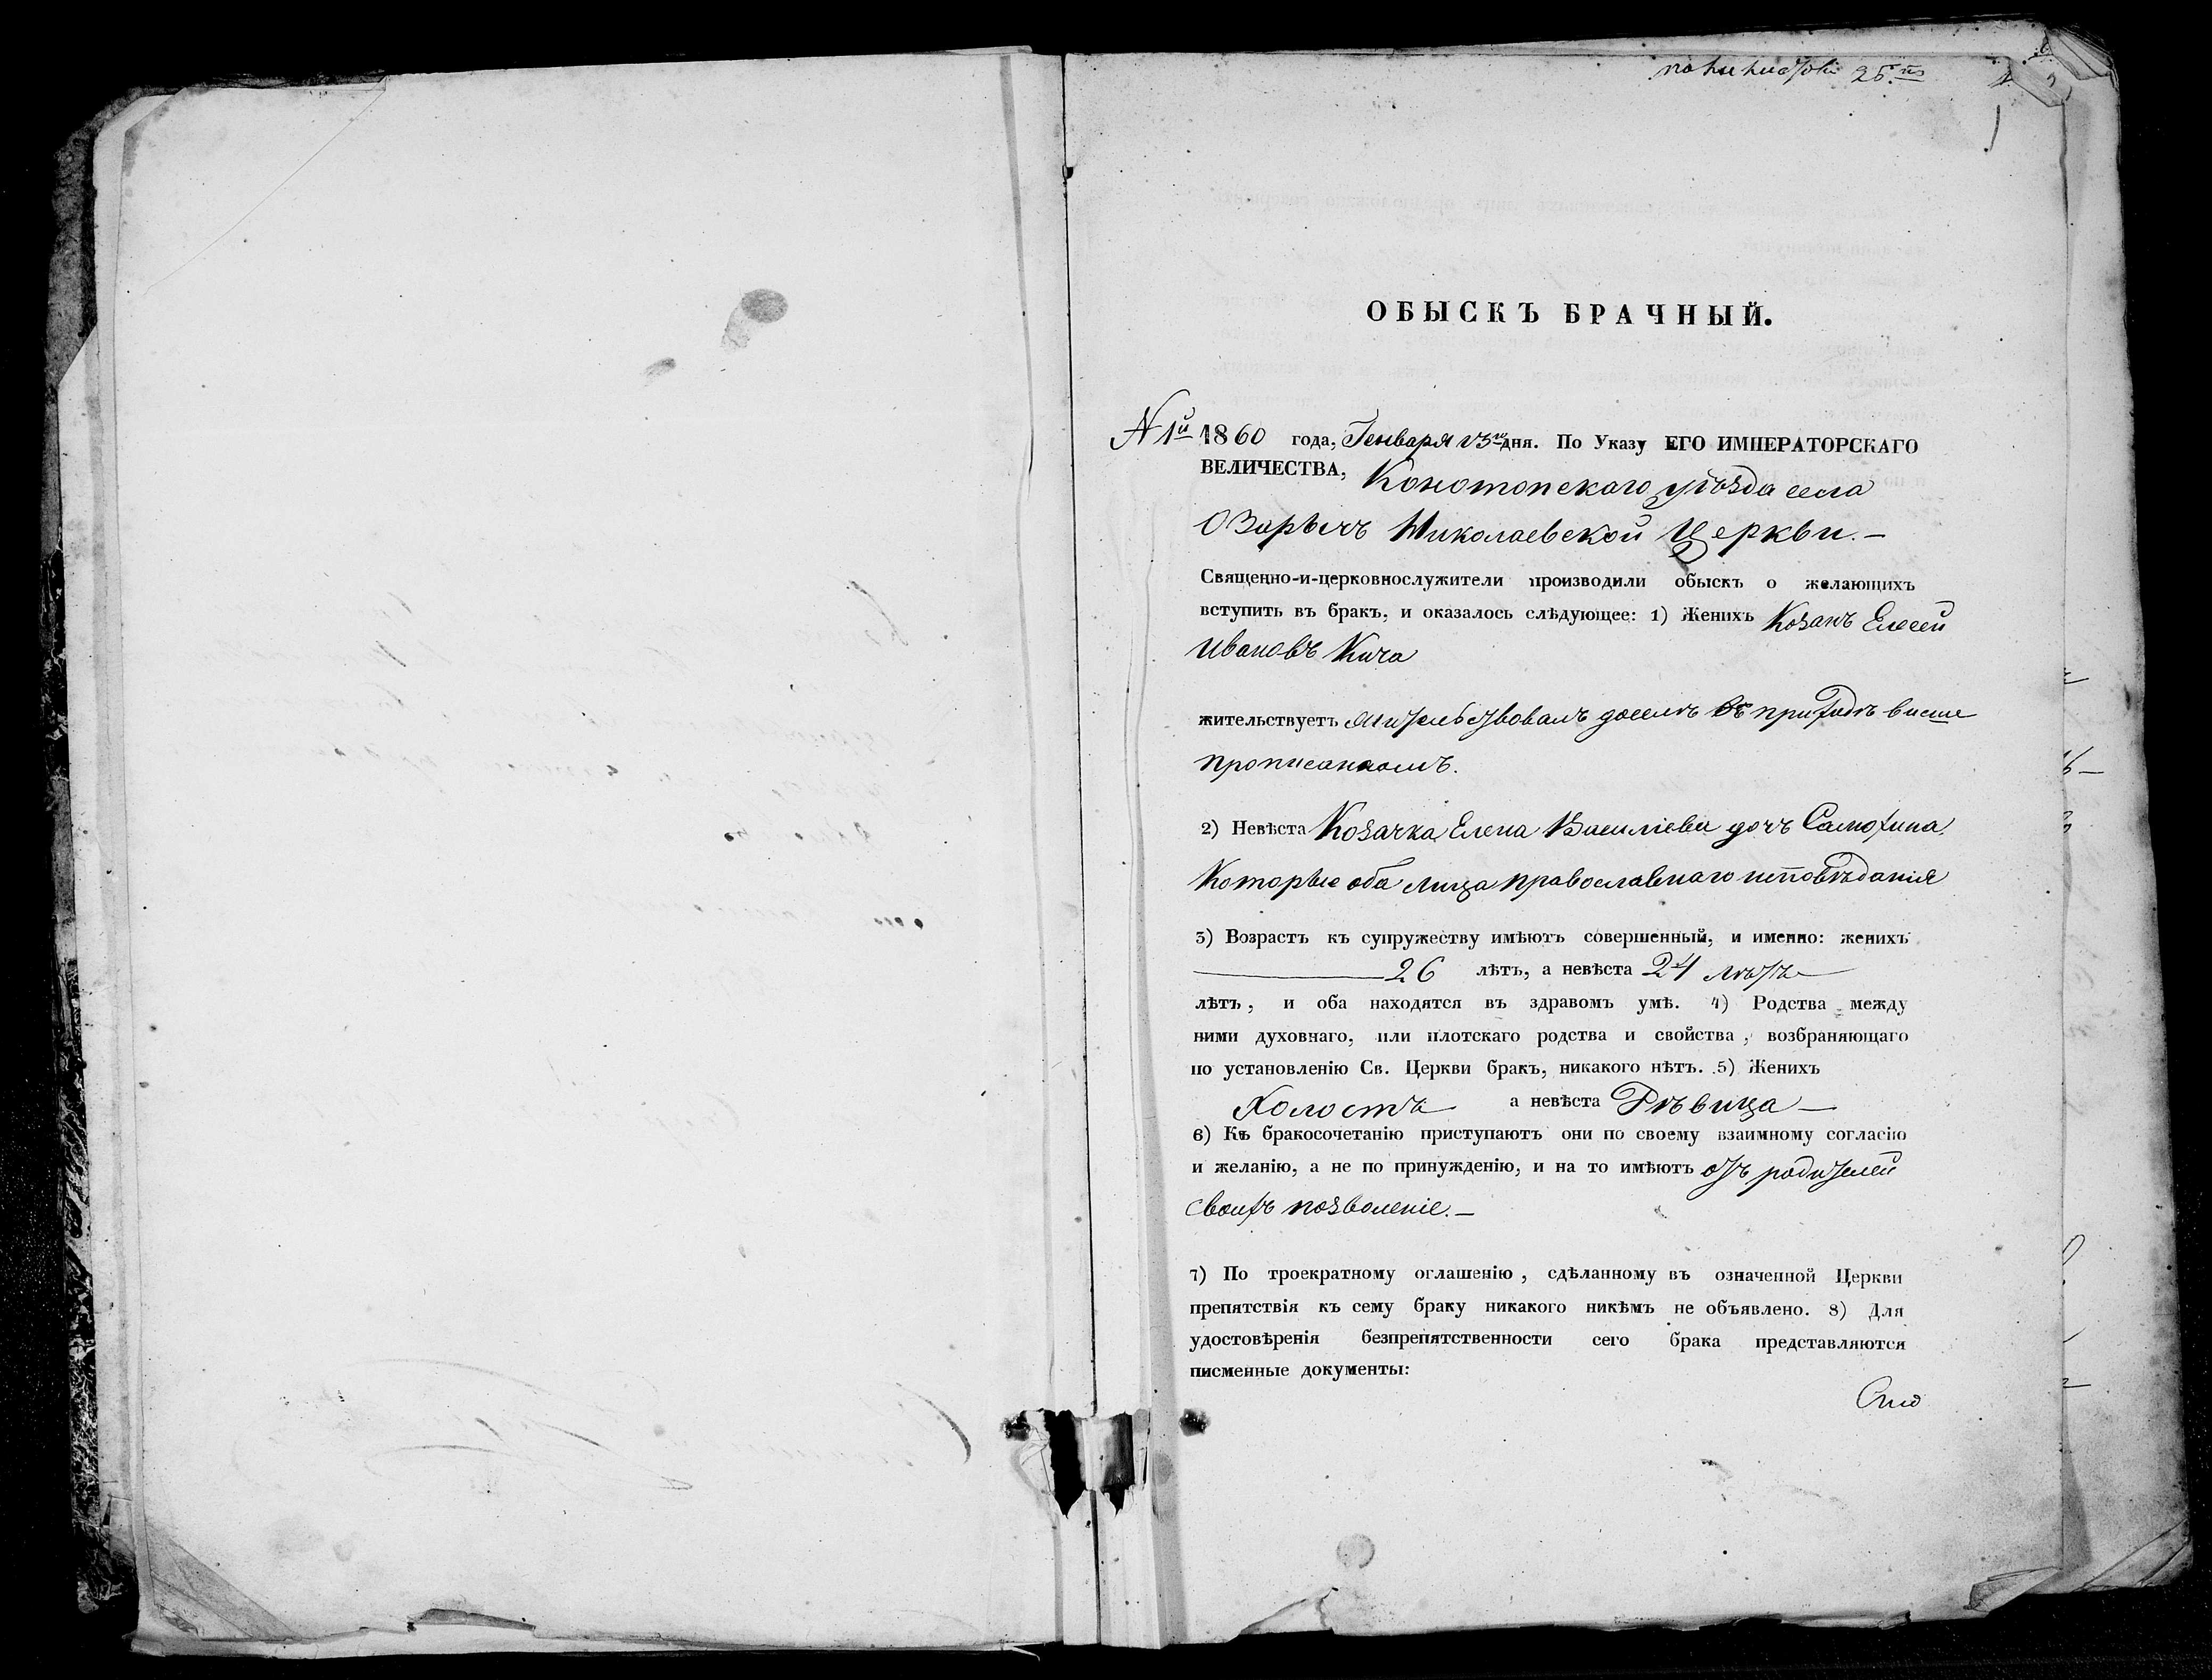 25.
1
ОБЫСКЪ БРАЧНЫЙ.
N 1й 1860 года, Генваря дня. По Указу ЕГО ИМПЕРАТОРСКАГО
ВЕЛИЧЕСТВА, Конотопскаго уѣзда села
Озарычъ Николаевской Церкви.—
Священно-и-церковнослужители производили обыскъ о желающихъ
вступить въ бракъ, и оказалось слѣдующее: 1) Женихъ Козакъ Елесей
Ивановъ Кича
жительствуетъ жительствовалъ доселѣ въ приходѣ выше
прописанномъ.
2) Невѣста Козачка Елена Василіева дочъ Самохина.
Которые оба лица православнаго исповѣданія
3) Возрастъ къ супружеству имѣютъ совершенный, и именно: женихъ
26 лѣтъ, а невѣста 24 лѣтъ
лѣтъ, и оба находятся въ здравомъ умѣ. 4) Родства между
ними духовнаго, или плотскаго родства и свойства, возбраняющаго
по установленію Св. Церкви бракъ, никакого нѣтъ. 5) Женихъ
Холостъ а невѣста Дѣвица —
6) Къ бракосочетанію приступаютъ они по своему взаимному согласію
и желанію, а не по принужденію, и на то имѣютъ отъ родителей
своихъ позволеніе.—
7) По троекратному оглашенію, сдѣланному въ означенной Церкви
препятствія къ сему браку никакого никѣмъ не объявлено. 8) Для
удостовѣренія безпрепятственности сего брака представляются
писменные документы: